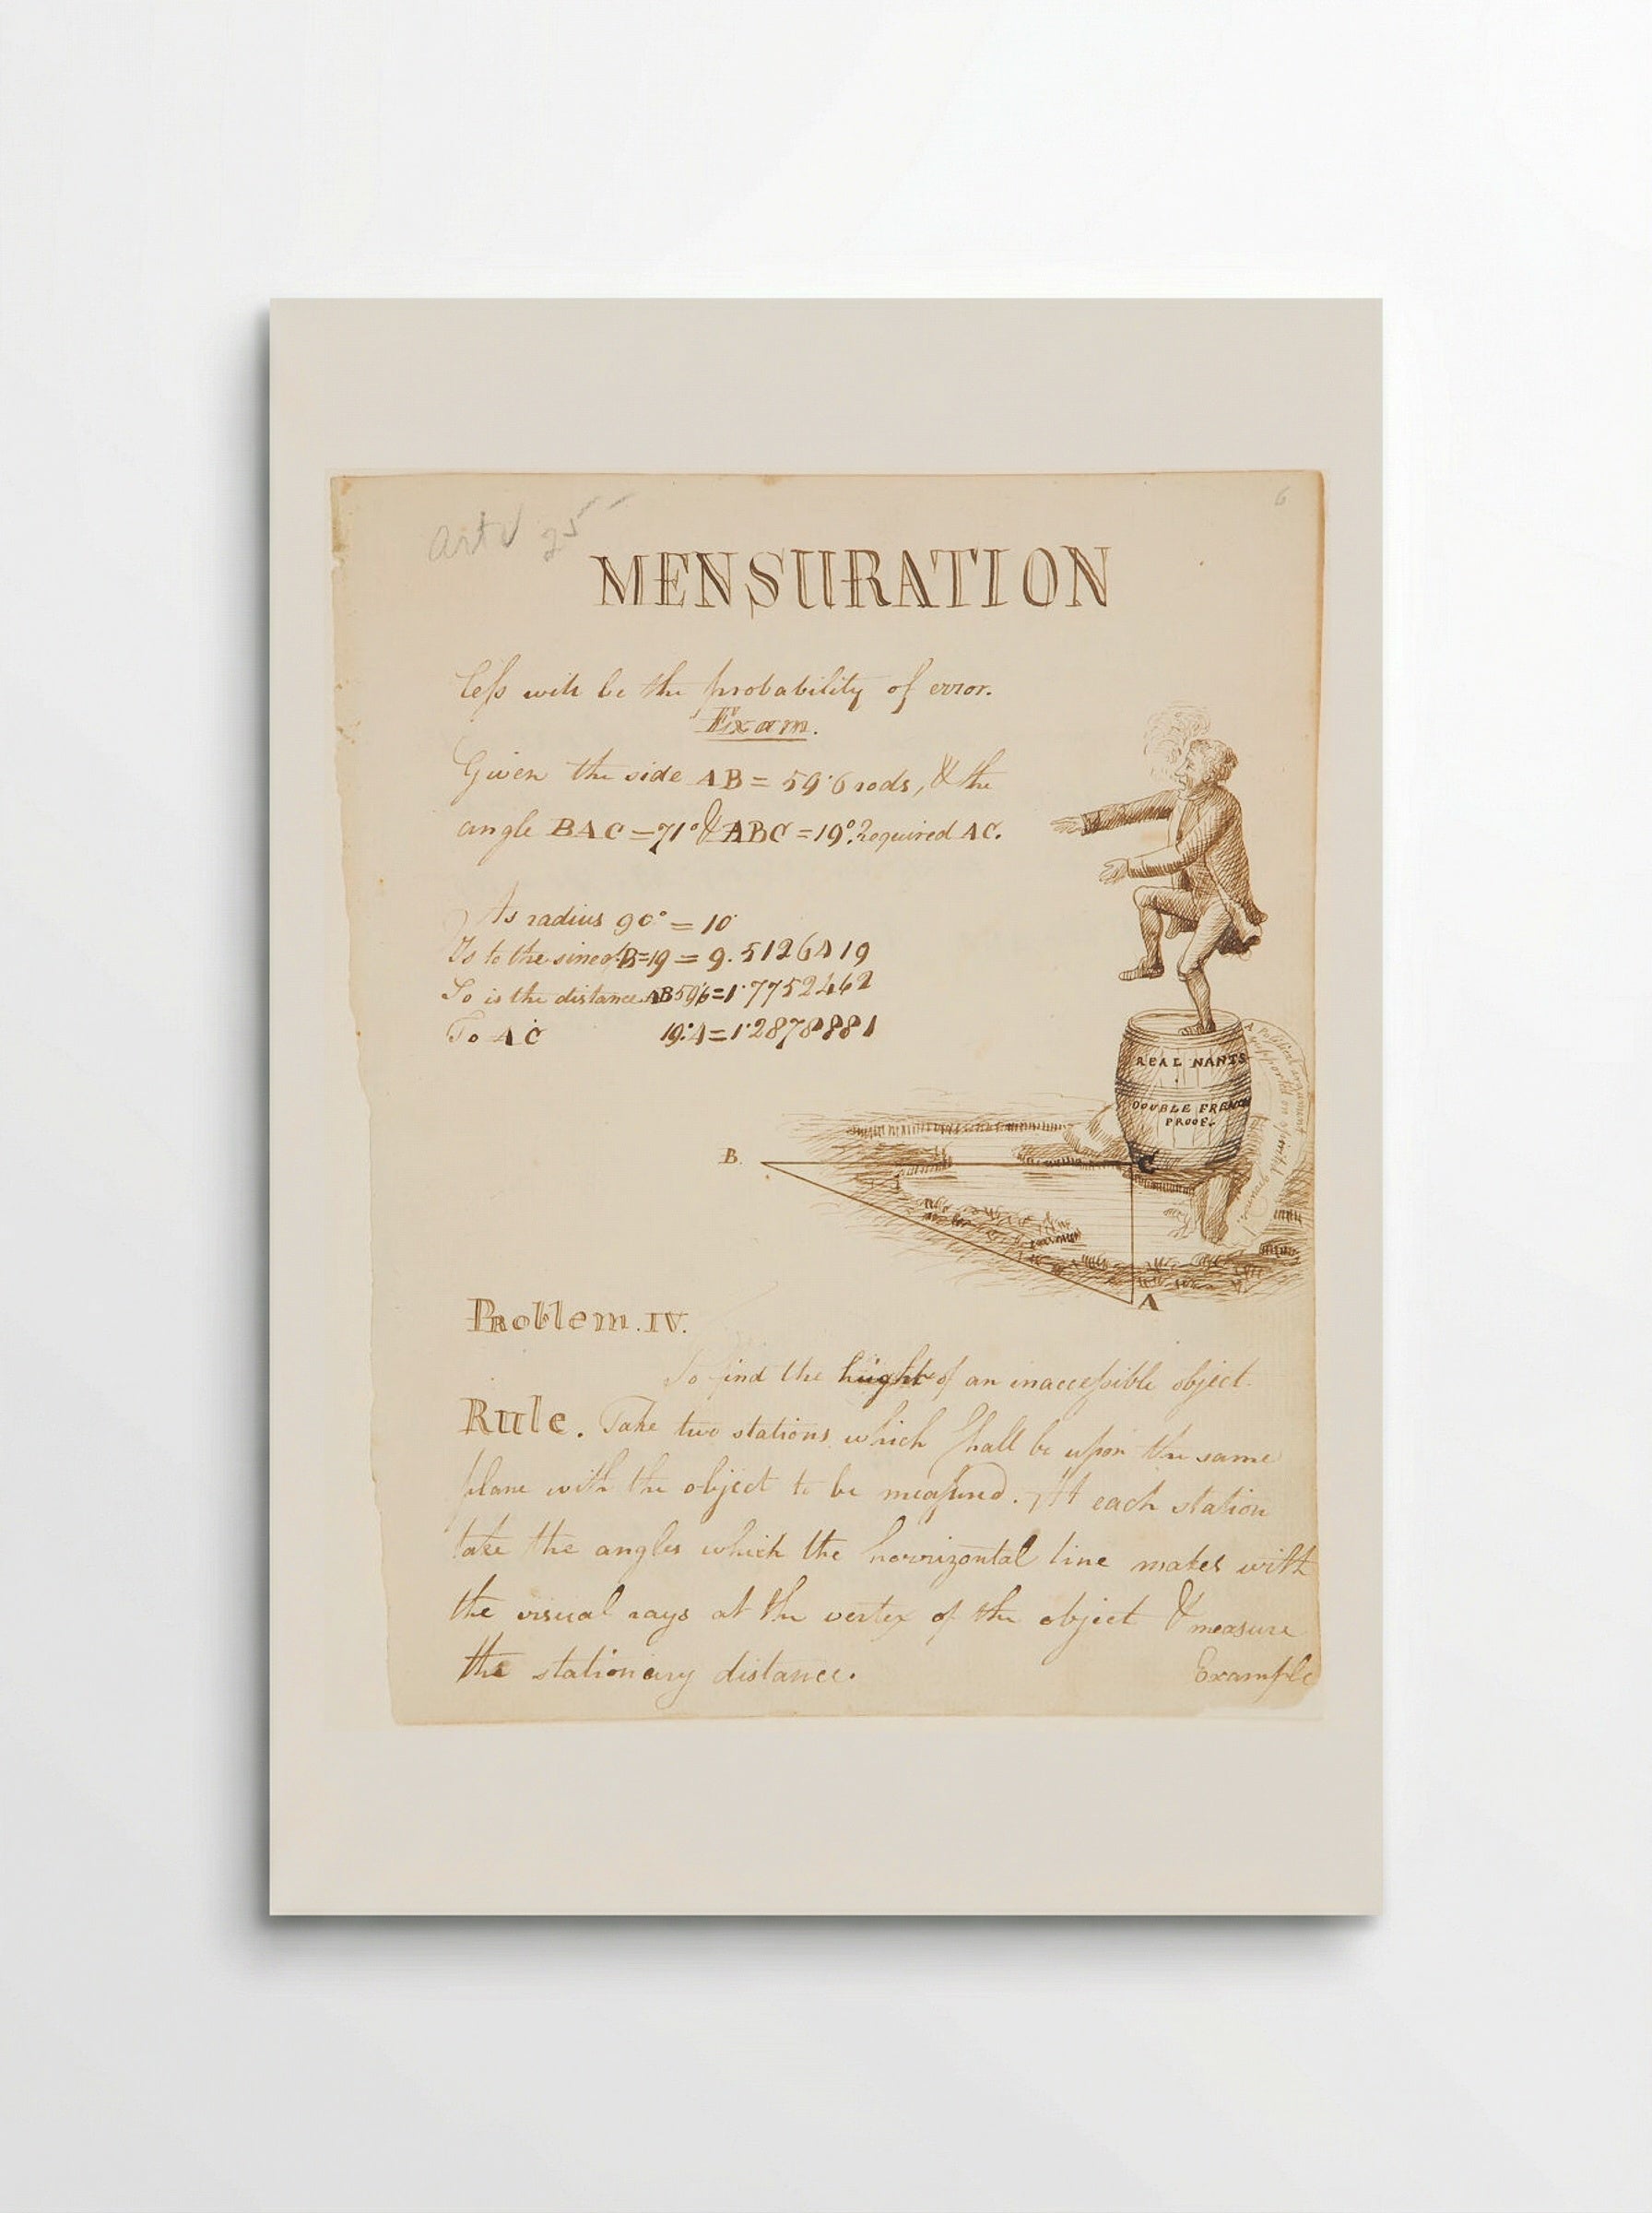 6
MENSURATION
less will be the probability of error.
Exam.
Given the side AB = 59.6 rods, & the
angle BAC = 71° & ABC = 19°. Required AC.
As radius 90° = 10
Is to the sine of B=19 = 9.5126419
So is the distance AB 59.6 = 1.7752462
To AC 19.4 = 1.2878881
REAL NANTS
DOUBLE FRENCH
PROOF.
A Political argument
supported on
B.
C
A
Problem. IV.
To find the hight of an inaccessible object.
Rule. Take two stations which shall be upon the same
plane with the object to be measured. At each station
take the angles which the horrizontal line makes with
the visual rays at the vertex of the object & measure
the stationary distance.
Example